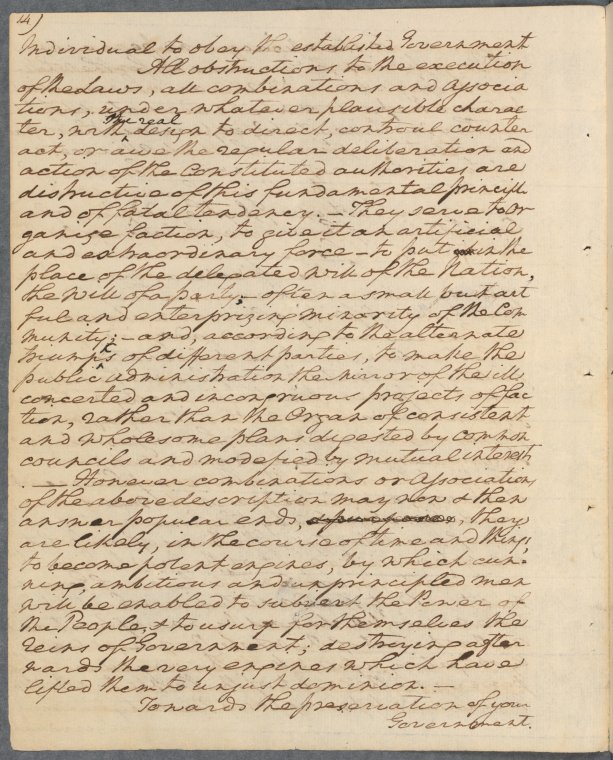 14)
Individual to obey the established Government
All obstructions to the execution
of the Laws, all combinations and Associa
tions, under whatever plausible charac
the real
ter, with design to direct, controul counter
act, or awe the regular deliberation and
action of the Constituted authorities are
distructive of this fundamental principle
and of fatal tendency. — They serve to Or
ganize faction, to give it an artificial
and extraordinary force — to put in the
place of the delegated will of the Nation,
the Will of a party; — often a small but art
ful and enterprizing minority of the Com
munity; — and, according to the alternate
triumphs of different parties, to make the
public administration the mirror of the ill
concerted and incongruous projects of fac
tion, rather than the Organ of consistent
and wholesome plans digested by common
councils and modefied by mutual interests.
— However combinations or Associations
of the above description may now & then
answer popular ends, & purposes, they
are likely, in the course of time and things,
to become potent engines, by which cun-
ning, ambitious and unprincipled men
will be enabled to subvert the Power of
the People, & to usurp for themselves the
reins of Government; destroying after
wards the very engines which have
lifted them to unjust dominion. —
Towards the preservation of your
Government.